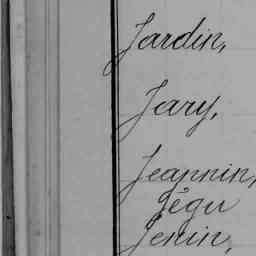 Jardin,
Jary,
Jeannin,
Jégu
Jenin,